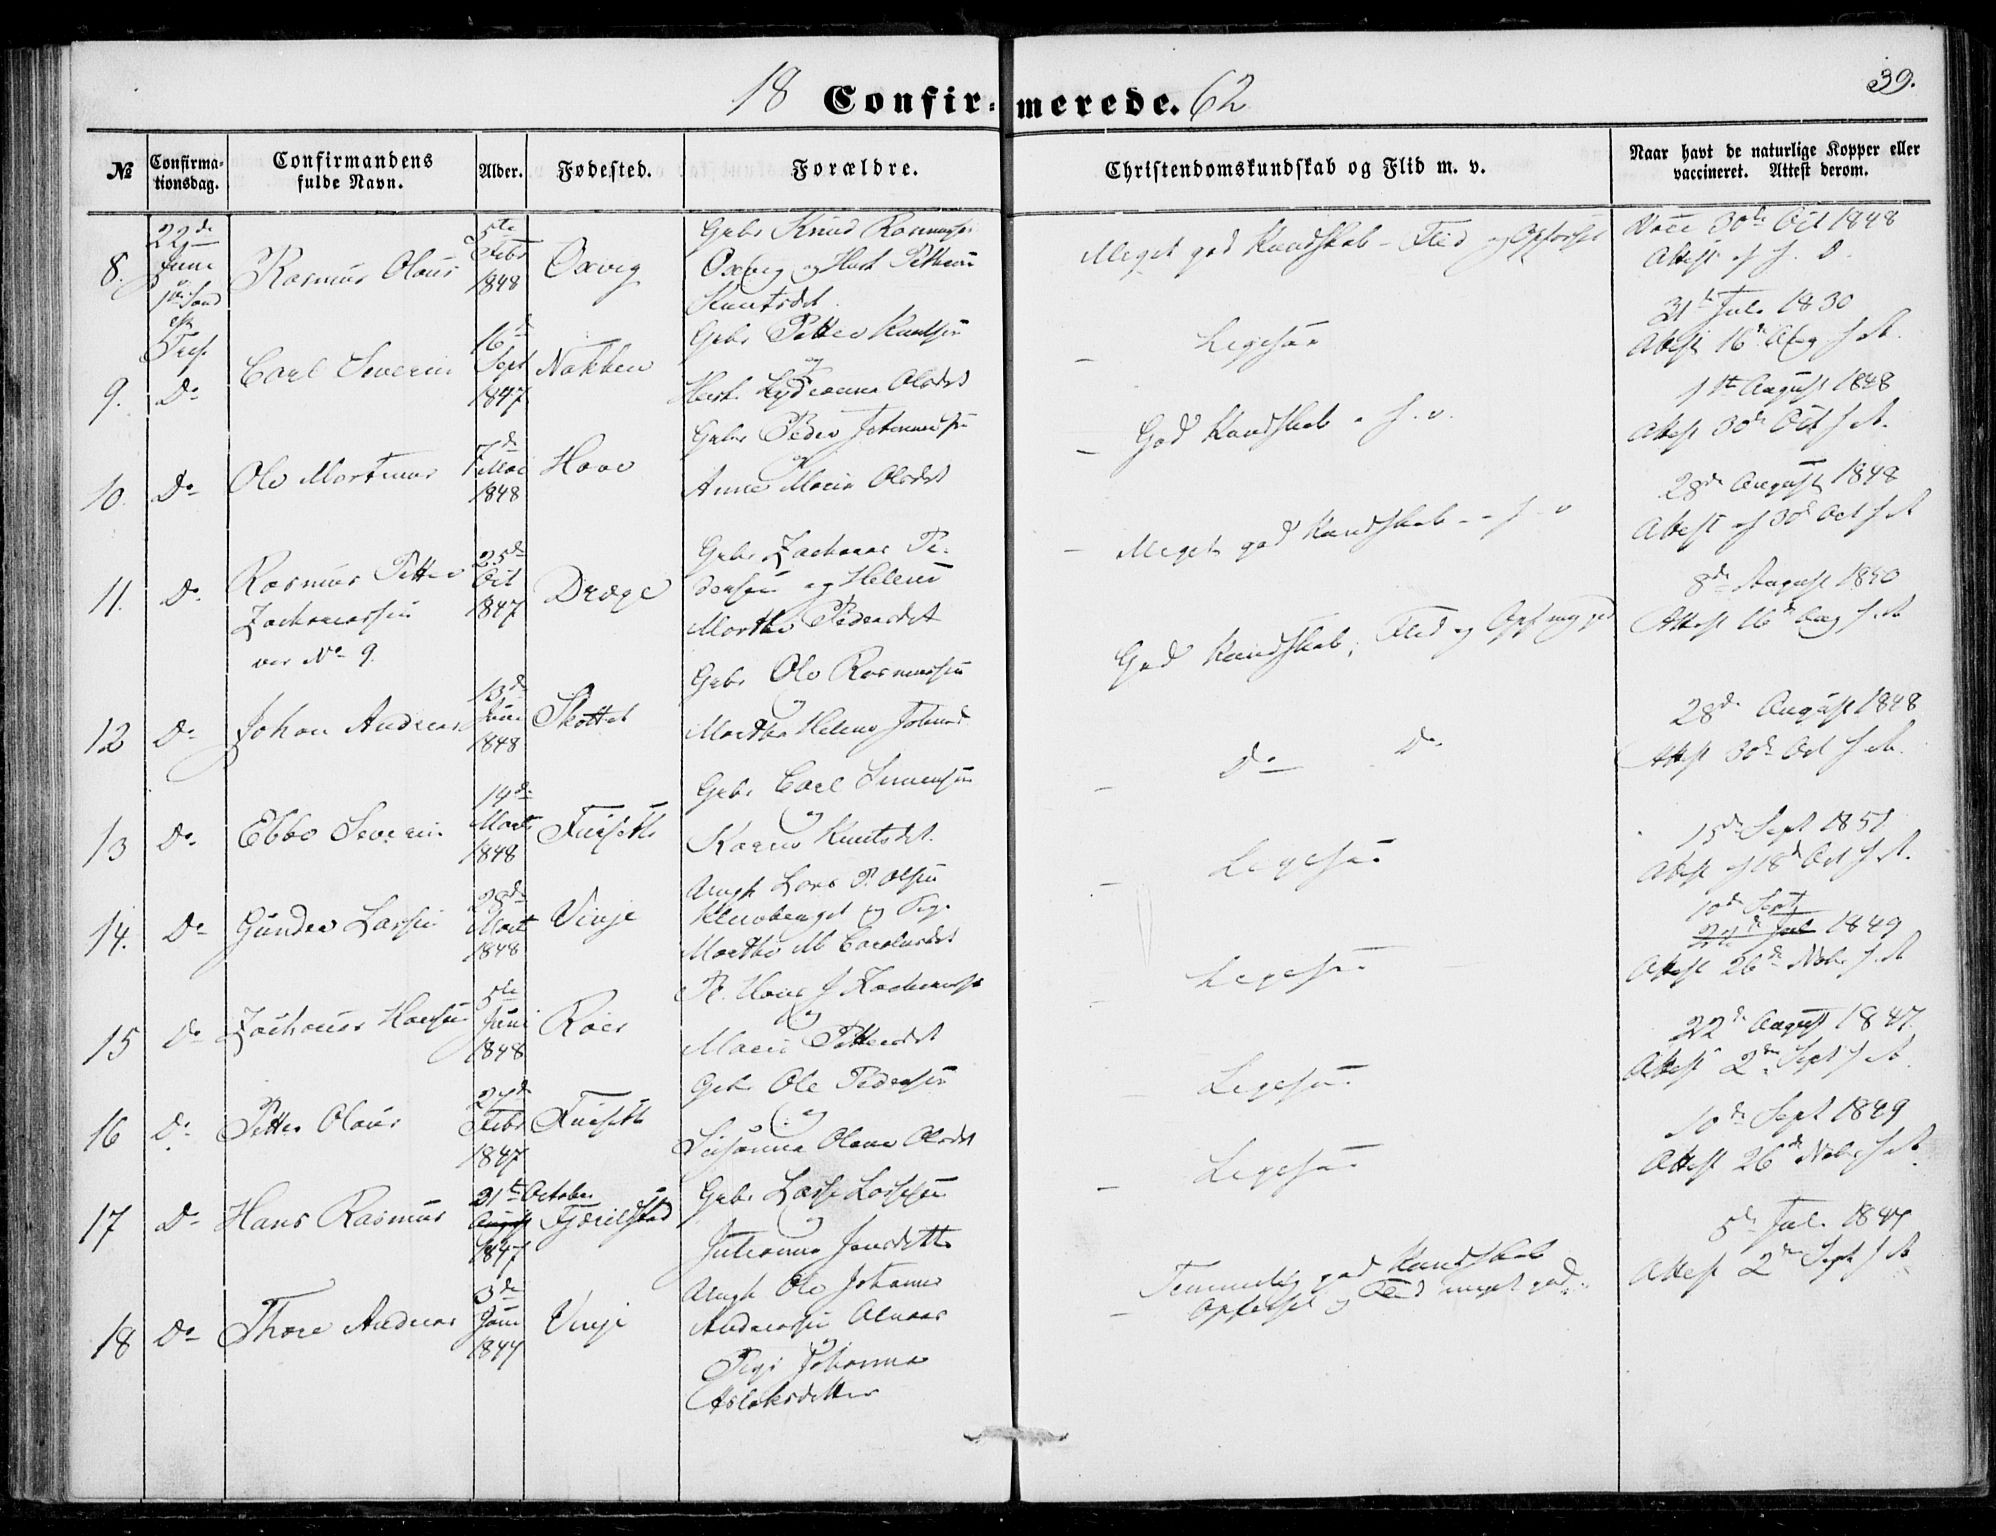 39.
18 Confir- merede. 62
№
Confirma-
tionsdag.
Confirmandens
fulde Navn.
Alder.
Fødested.
Forældre.
Christendomskundskab og Flid m. v.
Naar havt de naturlige Kopper eller
vaccineret. Attest derom.
8.
22de
Juni
Rasmus Olaus
5te
Febr
1848
Oxvig
Gbr Knud Rasmuss:
Oxvig og Hust
Knutsdt
Meget god Kundskab - Flid og Opførsel
Vacc 30te Oct 1848
Attest af s. D.
9.
Do
Carl Severin
16de
Sept
1847
Nakken
Gbr Petter Knutsen
og
Hust. Olsdt
Ligesaa
31te Juli 1830
Attest 16de Aug s. A.
10.
Do
Ole Martinus
7de
Mai
1848
Hove
Gbr Peder Johannes
og
Anne Maria Olsdt
God Kundskab - s. v.
11te August 1848
Attest 30de Oct s. A.
11.
Do.
Rasmus Petter
Zachariassen
No 9.
25de
Oct
1847
Drage
Gbr Zacharias Pe-
dersen og Helene
Marthe Pedersdt
Meget god Kundskab - - s - v
28de August 1848
Attest af 30de Oct s. A
12
Do
Johan Andreas
13de
Juni
1848
Skottet
Gbr Ole Rasmussen
og
Marthe Helene
God Kundskab; Flid og Opf meg god
8de August 1850
Attest 16de Aug s. A
13
Do.
Ebbe Severin
19de
Marts
1848
Furseth
Gbr Carl Simensen
og
Karen Knutsdt.
Do Do
28de August 1848
Attest 30de Oct s. A.
14.
Do
Gunder Larsen
28de
Mart
1848
Vinje
Ungk Lars P. Olsen
og Pige
Marthe M
Ligesaa
15de Sept 1851
Attest af 18de Oct s. A.
15
Do
Zacharias Hansen
5te
Juni
1848
Roer
og
Maria Pettersdt
Ligesaa
10de Sept
24de Jul 1849
Attest 26de Nobr s. A
16
Do.
Petter Olaus
27de
Febr
1847
Furseth
Gbr Ole Pedersen
og
Susanna Olava Olsdt
Ligesaa
22de August 1847
Attest 2den Sept s. A.
17
Do
Hans Rasmus
21te October
August
1847
Fjærilstad
Gbr Lasse Lassesen
og
Julianna Jensdttr
Ligesaa
10de Sept 1849
Attest 26de Nobr s. A.
18
Do
Thore Andreas
3de
Jan
1847
Vinje
Ungk Ole Johannes
Andreassen Alnaas
og
Pige Johanna
Aslaksdatter
Temmelig god Kundskab
Opførsel og Flid meget god
5te Juli 1847
Attest 2den Sept s. A